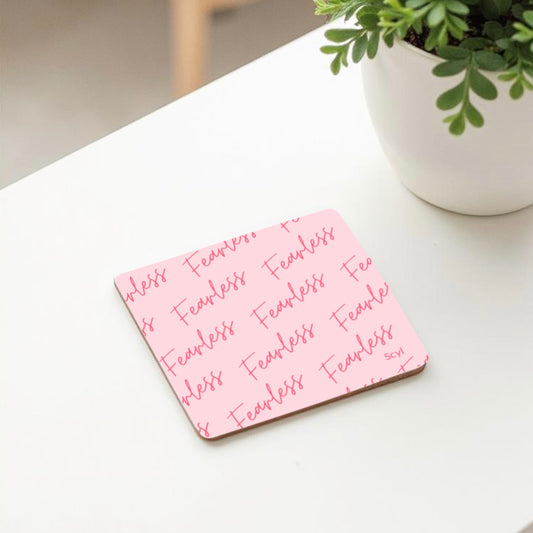 Fe
Fearless
Fearless
arless
Fearless
Fearless
Fe
ss
Fearless
Fearless
Fearless
arless
Fearless
Fearless
Scyl
s